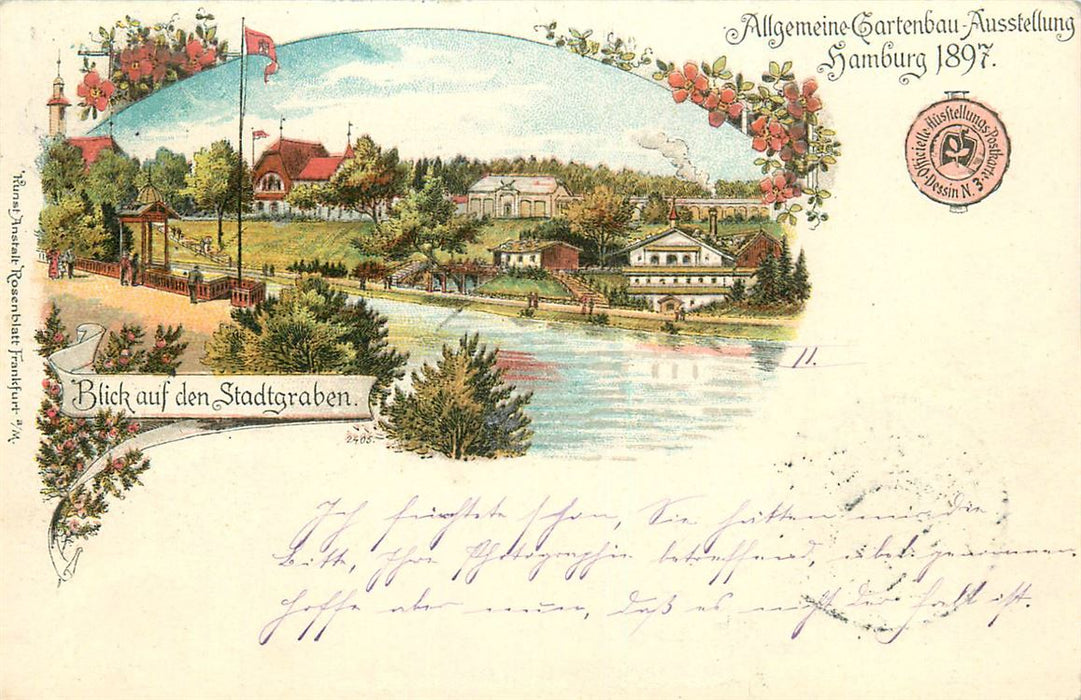 Allgemeine Gartenbau-Ausstellung
Hamburg 1897.
Officielle Ausstellungs-Postkarte
Dessin N. 3.
Kunst Anstalt Rosenblatt Frankfurt a/M.
11.
Blick auf den Stadtgraben.
2405.
Ich fürchtete schon, Sie hätten mir die
Bitte, Ihre Photographie betreffend, übel genommen
hoffe aber nun, daß es nicht der Fall ist.